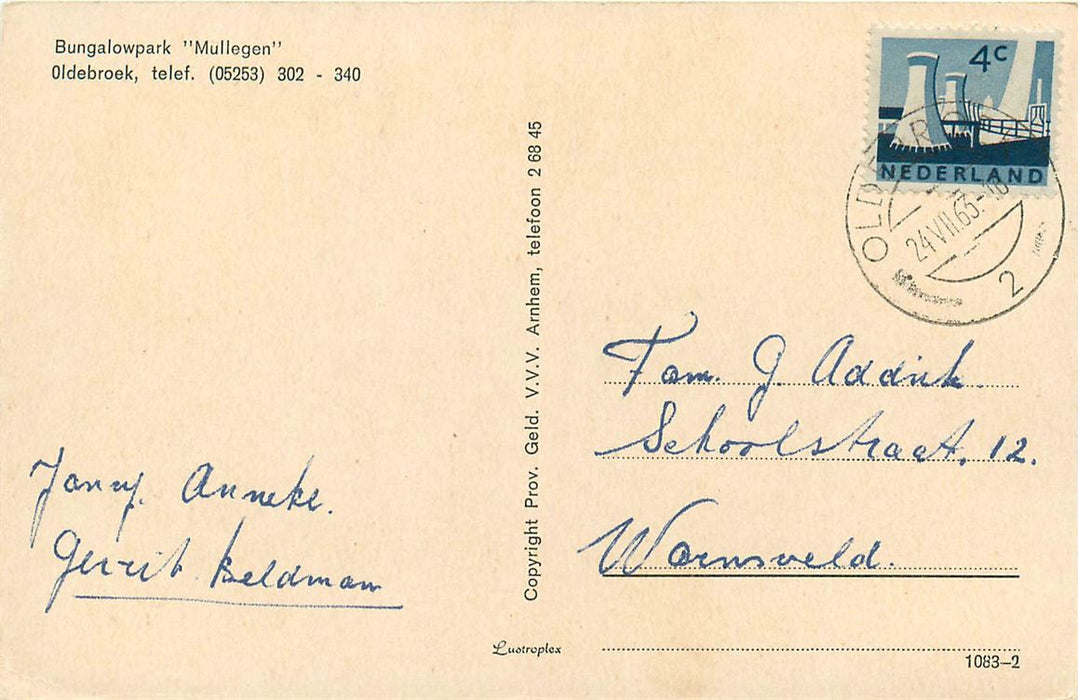 Bungalowpark "Mullegen"
Oldebroek, telef. (05253) 302 - 340
4c
NEDERLAND
OLDEBROEK
24 VII 63.-16
2
Copyright Prov. Geld. V.V.V. Arnhem, telefoon 2 68 45
Fam. G. Addink.
Schoolstraat. 12.
Warnsveld.
Janny. Anneke.
Gerrit Beldman
Lustroplex
1083-2